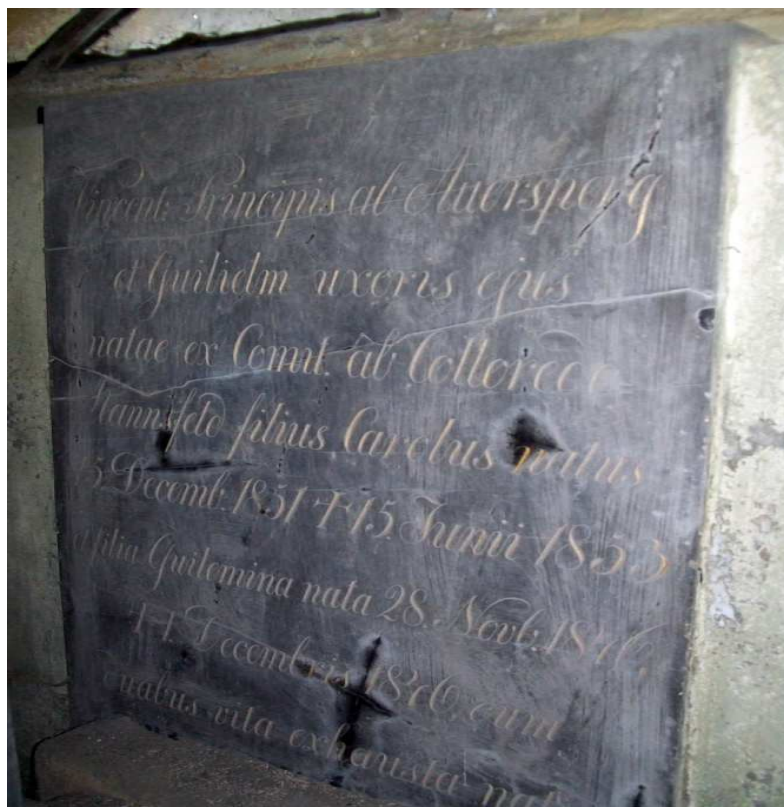 Vincent: Principis ab Auersperg
et Guilielm uxoris ejus
natae ex Comit. ab Colloredo
Mannsfeld filius Carolus natus
15. Decemb. 1851 † 15. Junii 1853
et filia Guilemina nata 28. Novb. 1846,
Decembris 1846, cum
vita exhausta